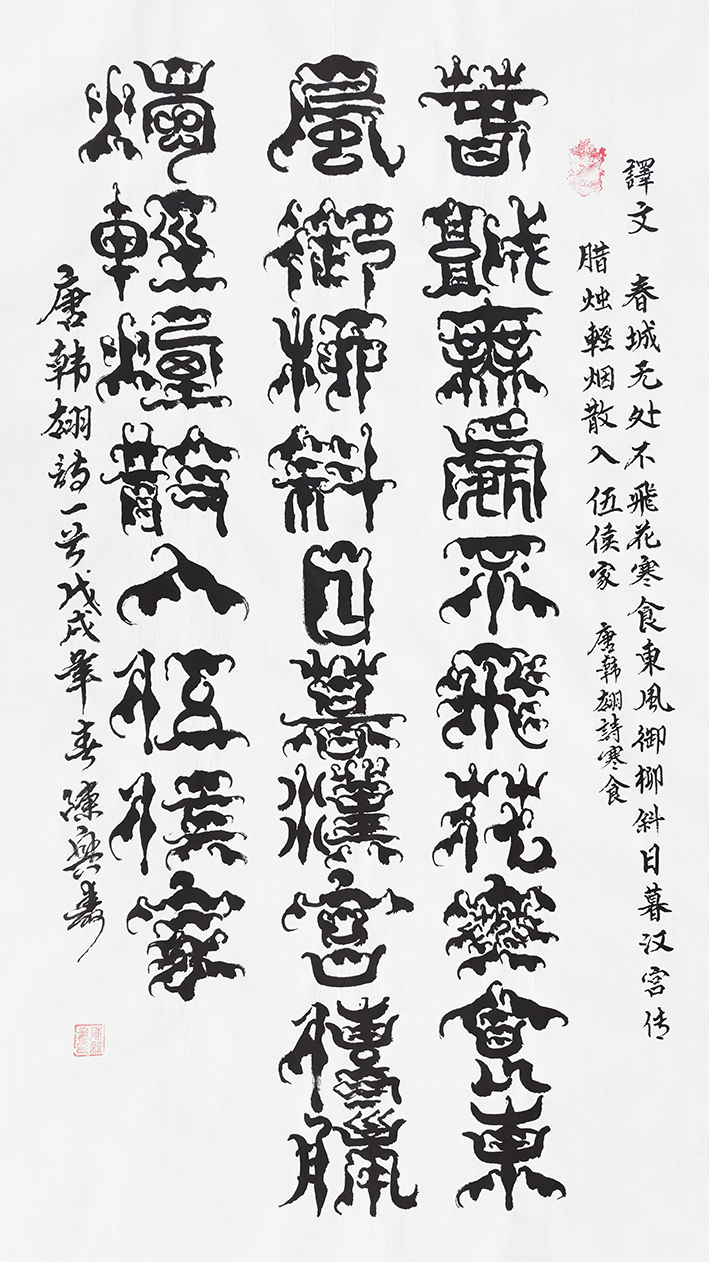 譯文 春城无处不飛花寒食東風御柳斜日暮汉宮传
腊烛輕烟散入伍侯家 唐韩翃詩寒食
春城無處不飛花寒食東
風御柳斜日暮漢宮傳臘
燭輕煙散入伍侯家
唐韩翃詩一首戊戌年春陳興壽